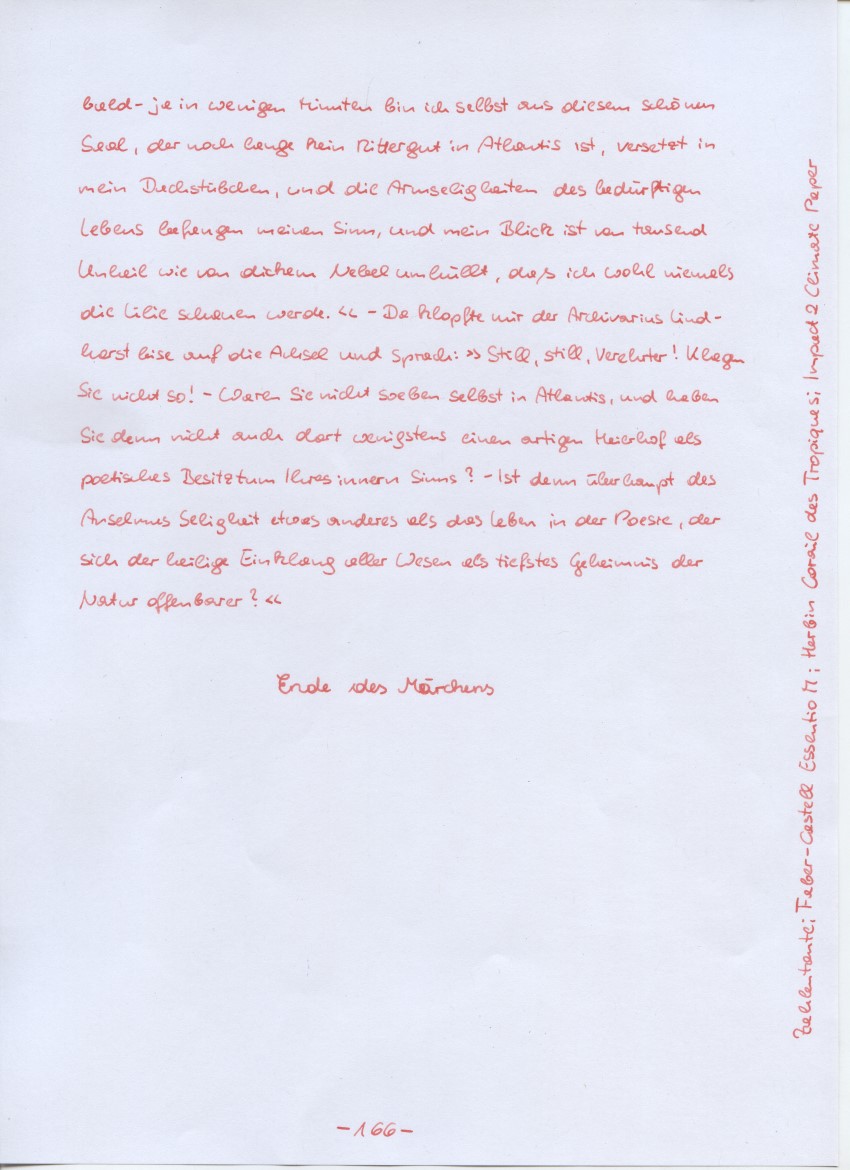 bald – ja in wenigen Minuten bin ich selbst aus diesem schönen
Saal, der noch lange kein Rittergut in Atlantis ist, versetzt in
mein Dachstübchen, und die Armseligkeiten des bedürftigen
Lebens befangen meinen Sinn, und mein Blick ist von tausend
Unheil wie von dickem Nebel umhüllt, daß ich wohl niemals
die Lilie schauen werde.« – Da klopfte mir der Archivarius Lind-
horst leise auf die Achsel und sprach: »Still, still, Verehrter! Klagen
Sie nicht so! – Waren Sie nicht soeben selbst in Atlantis, und haben
Sie denn nicht auch dort wenigstens einen artigen Meierhof als
poetisches Besitztum Ihres innern Sinns? – Ist denn überhaupt des
Anselmus Seligkeit etwas anderes als das Leben in der Poesie, der
sich der heilige Einklang aller Wesen als tiefstes Geheimnis der
Natur offenbaret?«
Ende des Märchens
Zahlentante; Faber-Castell Essentio M; Herbin Corail des Tropiques; Impact 2 Climate Paper
–166–